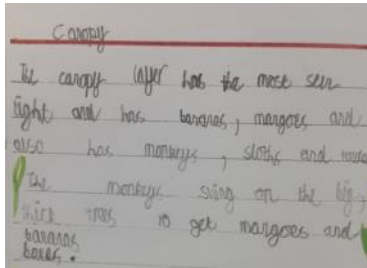 Canopy
The canopy layer has the most sun
light and has bananas, mangoes and
also has monkeys, sloths and
The monkeys swing on the big,
thick trees to get mangoes and
bananas